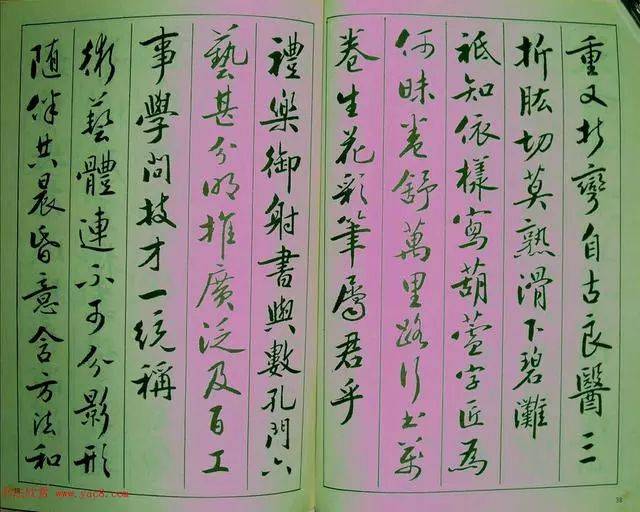 重又折彎自古良醫三
折肱切莫熟滑下碧灘
祗知依樣寫葫蘆字匠為
何昧卷舒萬里路行書萬
卷生花彩筆屬君乎
38
禮樂御射書與數孔門六
藝甚分明推廣泛及百工
事學問技才一統稱
術藝體連不可分影形
随伴共晨昏意含方法和
书法欣赏 www.yac8.com